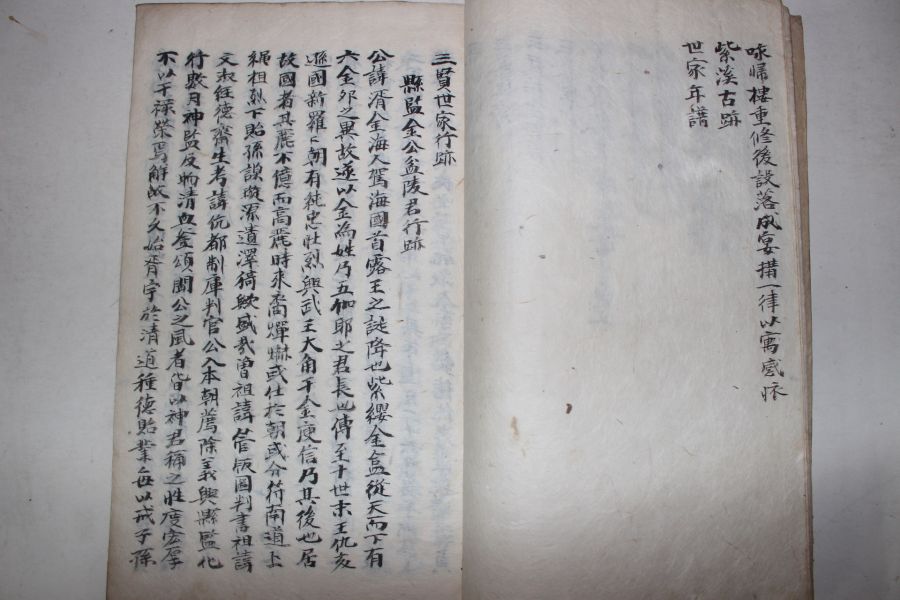 咏歸樓重修後設落成宴構一律以寓感懷
紫溪古跡
世家年譜
三賢世家行跡
縣監金公盆陵君行跡
公諱湑金海人駕海國首露王之誕降也紫纓金盒從天而下有
六金卵之異故遂以金為姓乃五伽耶之君長也傳至十世末王仇亥
遜國新羅羅朝有純忠壯烈興武王大角干金庾信乃其後也居
故國者其麗不億而高麗時來裔燀爀或仕於朝或分符南道上
繩祖烈下貽孫謨璇源遺澤猗歟盛哉曾祖諱管版圖判書祖諱
文淑經德齋生考諱伉都制庫判官公入本朝薦除義興縣監化
行數月神監反物清與人頌聞公之風者皆以神君稱之性度宏厚
不以干祿榮焉解故不久始胥宇於清道種德貽業每以戒子孫